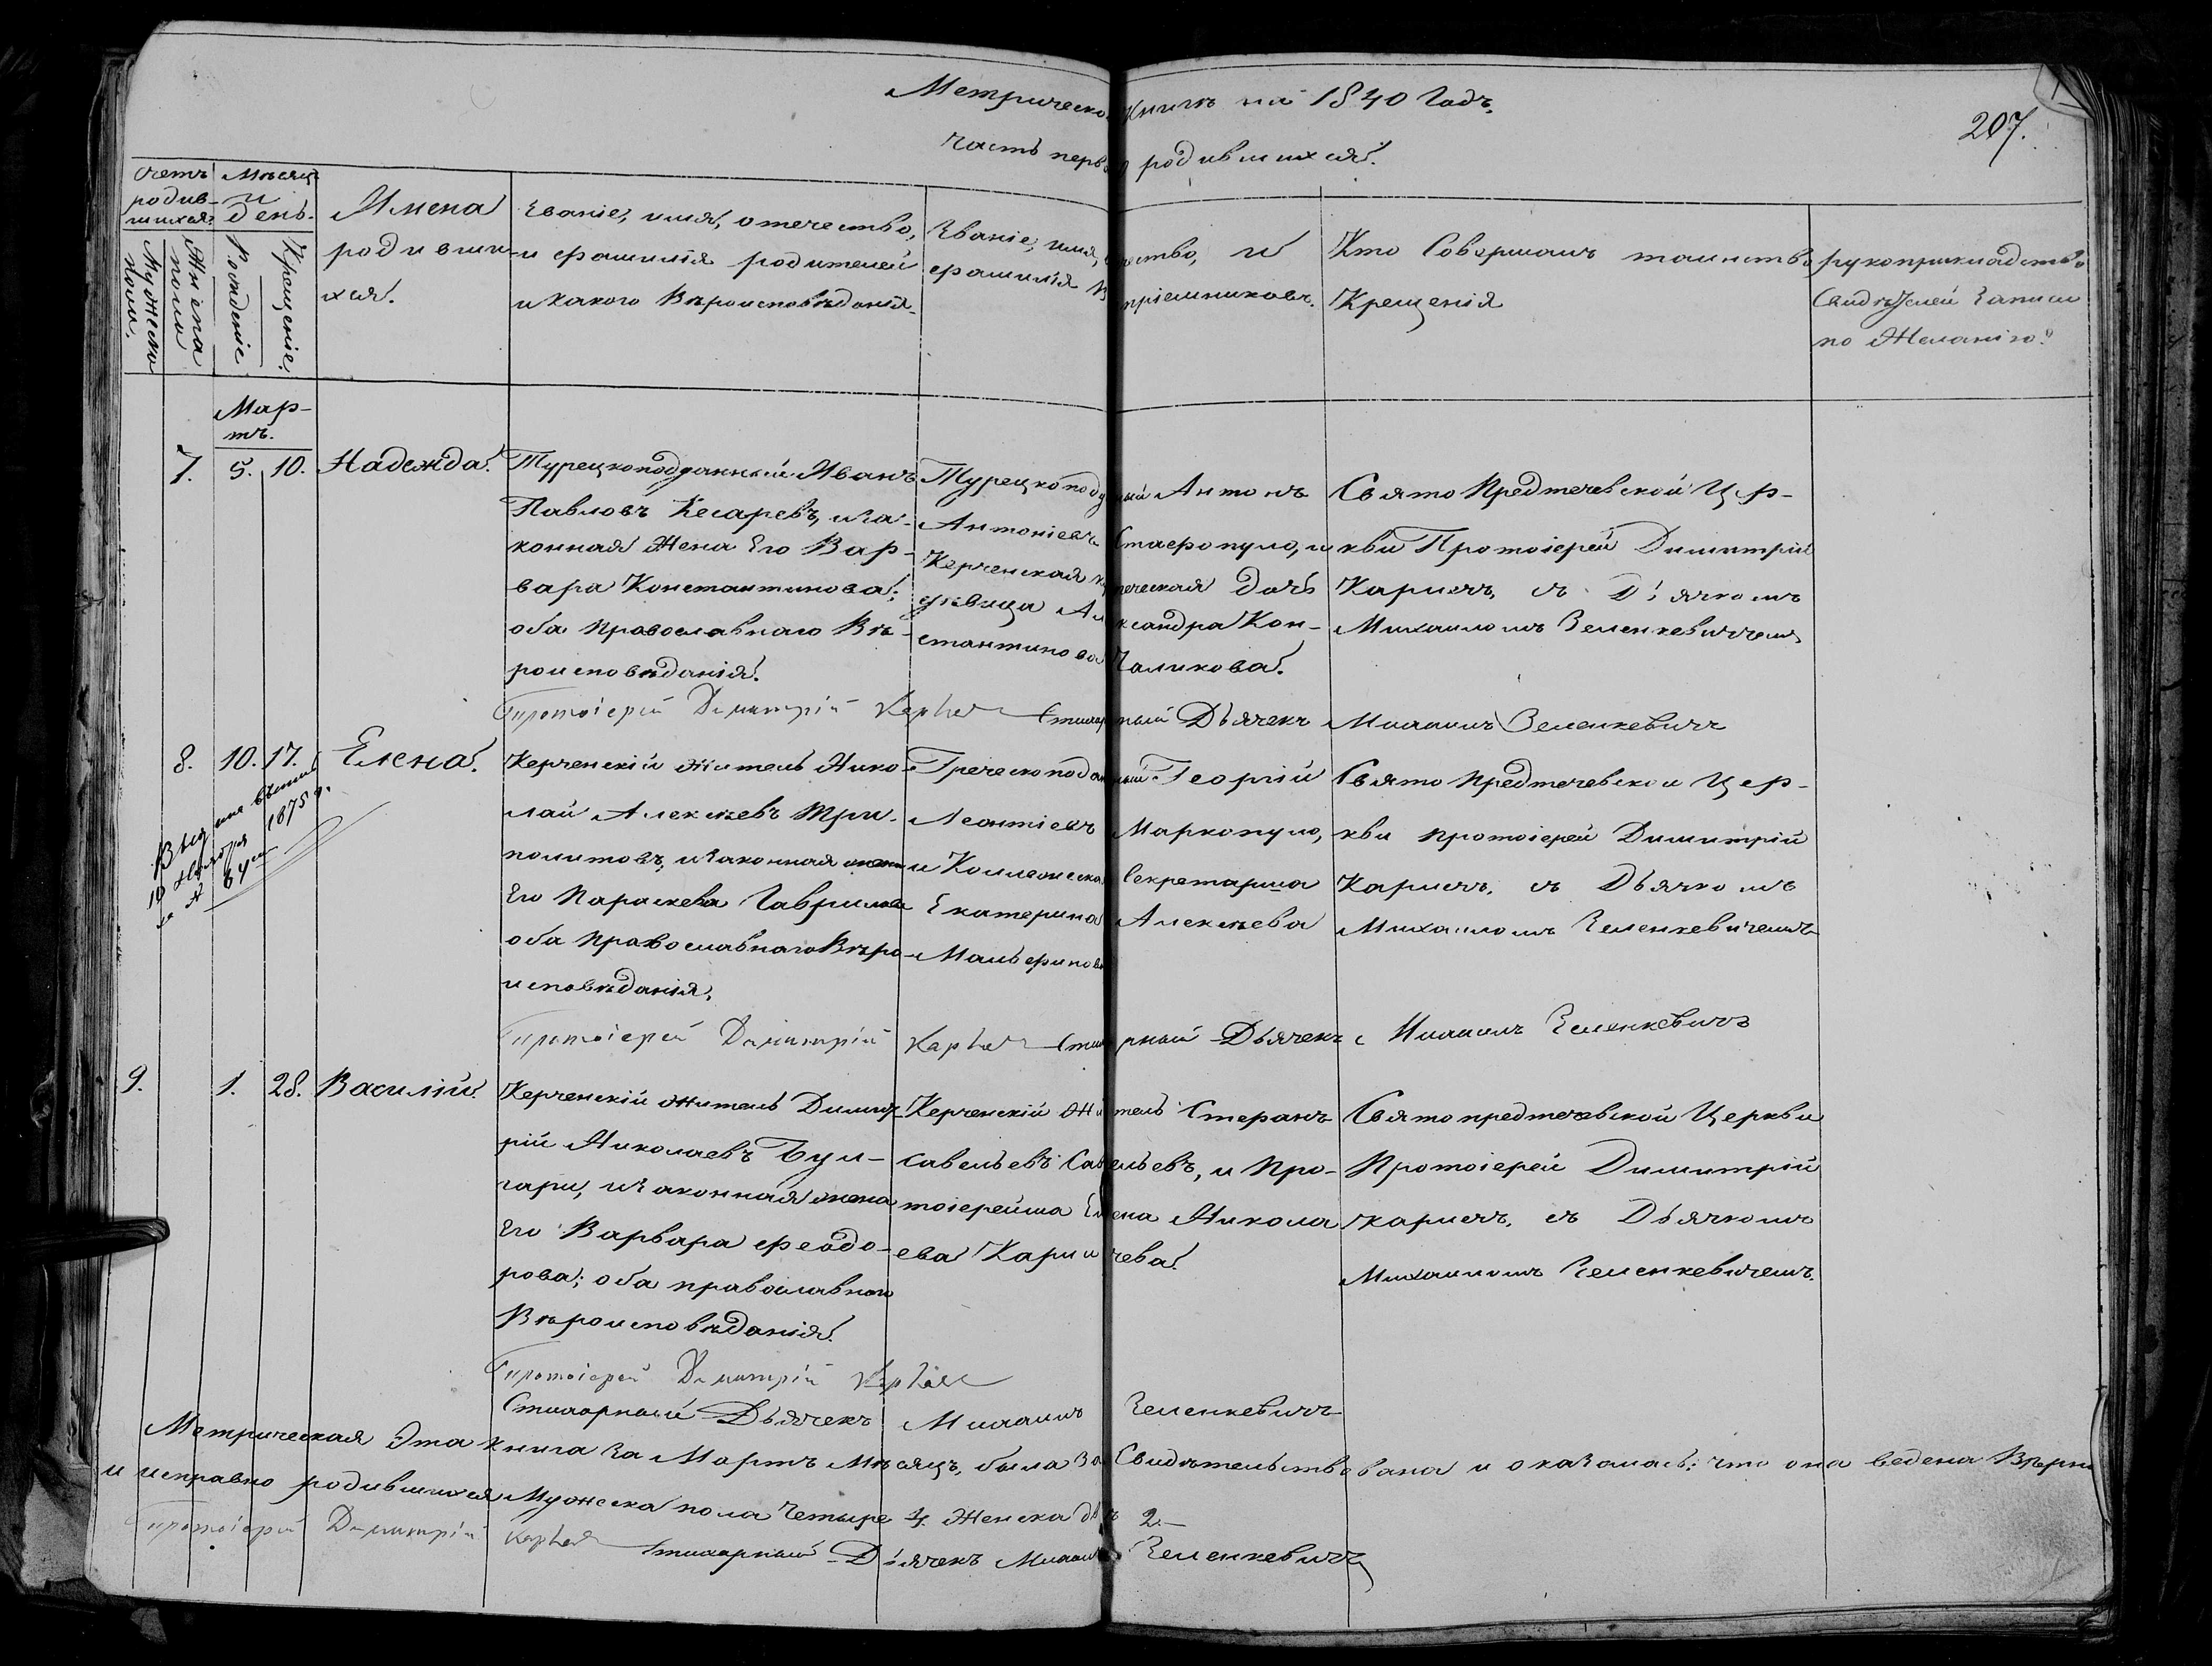 Метрической Книги на 1840 Годъ.
207.
Часть первая родившихся.
Счетъ родив-шихся
Мужеска пола.
Женска пола
Мѣсяцъ и день.
Рожденіе.
Крещеніе.
Имена
родивши-
хся.
Званіе, имя, отечество,
и фамилія родителей
и какого Вѣроисповѣданія.
Званіе, имя, отечество, и
фамилія воспріемниковъ.
Кто Совершалъ таинство
Крещенія
рукоприкладство
Свидѣтелей Записи
по Желанію.
Мар-
тъ.
7. 5. 10. Надежда.
Турецкоподданный Иванъ
Павловъ Кесаревъ, и за-
конная Жена Его Вар-
вара Константинова;
оба Православнаго Вѣ-
роисповѣданія.
Турецкоподданный Антонъ
Антоніевъ Стафопуло, и
Керченская купеческая дочь
дѣвица Александра Кон-
стантинова Чаликова.
Свято Предтечевской Цер-
кви Протоіерей Димитрій
Кариечъ, съ Дьячкомъ
Михаиломъ Зеленкевичемъ
Протоіерей Димитрій Стихарный Дьячекъ Михаилъ Зеленкевичъ
8. 10. 17. Елена.
Выдано
10 1875 г.
за № 64
Керченскій житель Нико-
лай Алексѣевъ Три-
политовъ, и законная жена
Его Параскева Гаврилова
оба Православнаго Вѣро-
исповѣданія.
Греческоподданный Георгій
Леонтіевъ Маркопуло,
и Коллежская Секретарша
Екатерина Алексѣева
Свято Предтечевской Цер-
кви протоіерей Димитрій
Кариечъ, съ Дьячкомъ
Михаиломъ Зеленкевичемъ
Протоіерей Димитрій Стихарный Дьячекъ Михаилъ Зеленкевичъ
9. 1. 28. Василій.
Керченскій житель Димит-
рій Николаевъ Бул-
гари, и законная жена
Его Варвара Феодо-
рова; оба православнаго
Вѣроисповѣданія.
Керченскій житель Стефанъ
Савельевъ Савельевъ, и Про-
тоіерейша Елена Никола
ева Каричева.
Свято предтечевской Церкви
Протоіерей Димитрій
Кариечъ, съ Дьячкомъ
Михаиломъ Зеленкевичемъ.
Протоіерей Димитрій
Стихарный Дьячекъ Михаилъ Зеленкевичъ
Метрическая Эта книга За Мартъ Мѣсяцъ, была Засвидѣтельствована и оказалась: что она ведена Вѣрно
и исправно родившихся Мужеска пола Четыре 4. Женска двѣ 2.
Протоіерей Димитрій Стихарный Дьячекъ Михаилъ Зеленкевичъ